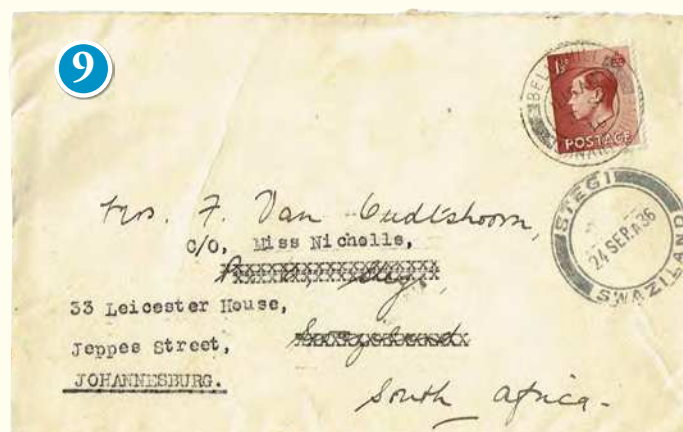 9
1½d
POSTAGE
STEGI
24 SEP. A 36
SWAZILAND
Mrs. F. Van Oudtshoorn,
c/o, Miss Nicholls,
33 Leicester House,
Jeppes Street,
JOHANNESBURG.
South Africa-